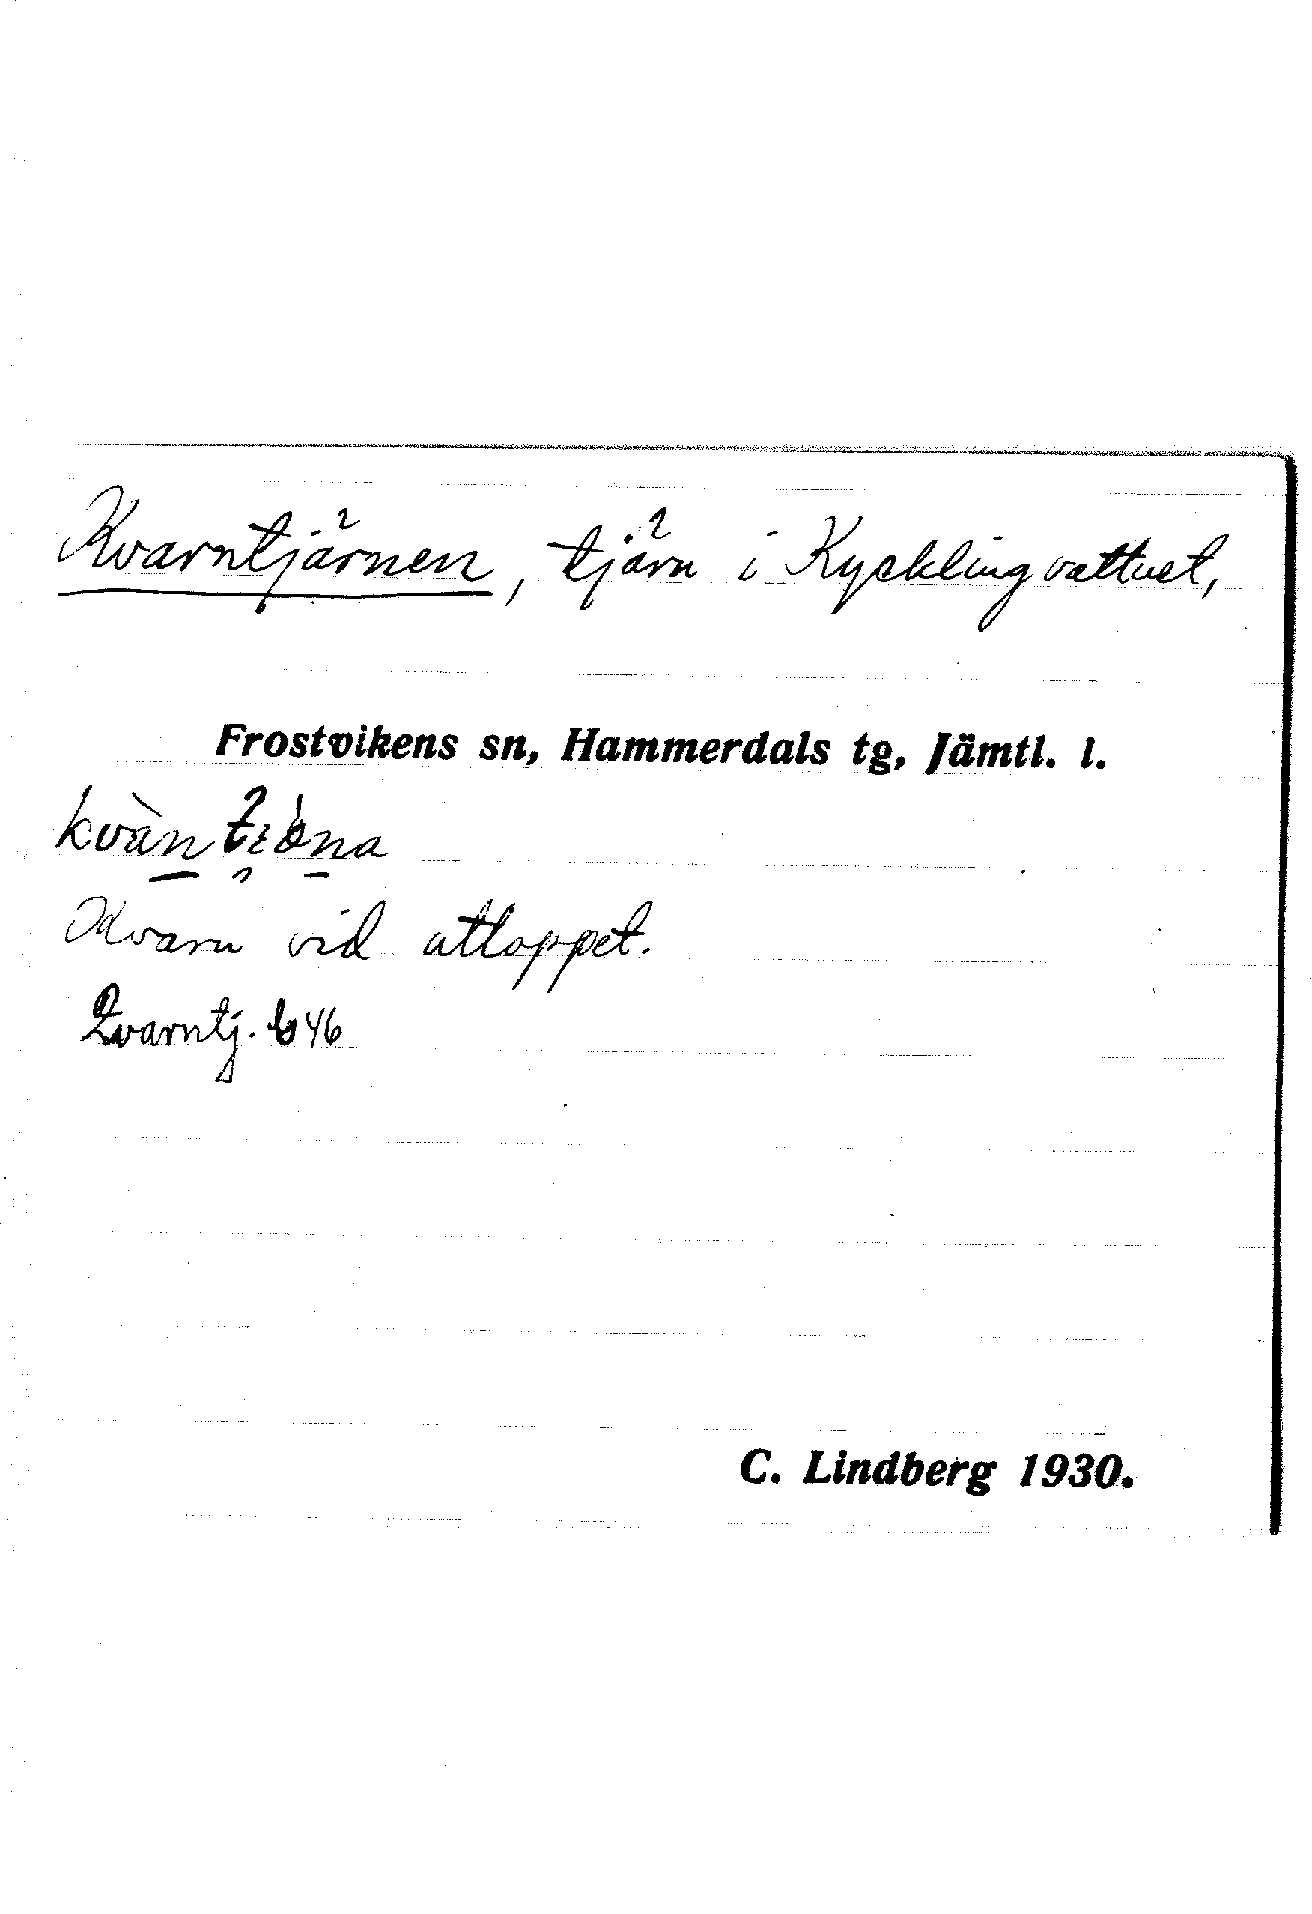 Kvarntjärnen, tjärn i Kycklingvattnet,
Frostvikens sn, Hammerdals tg, Jämtl. l.
Kvarn vid utloppet.
Qvarntj. 46
C. Lindberg 1930.